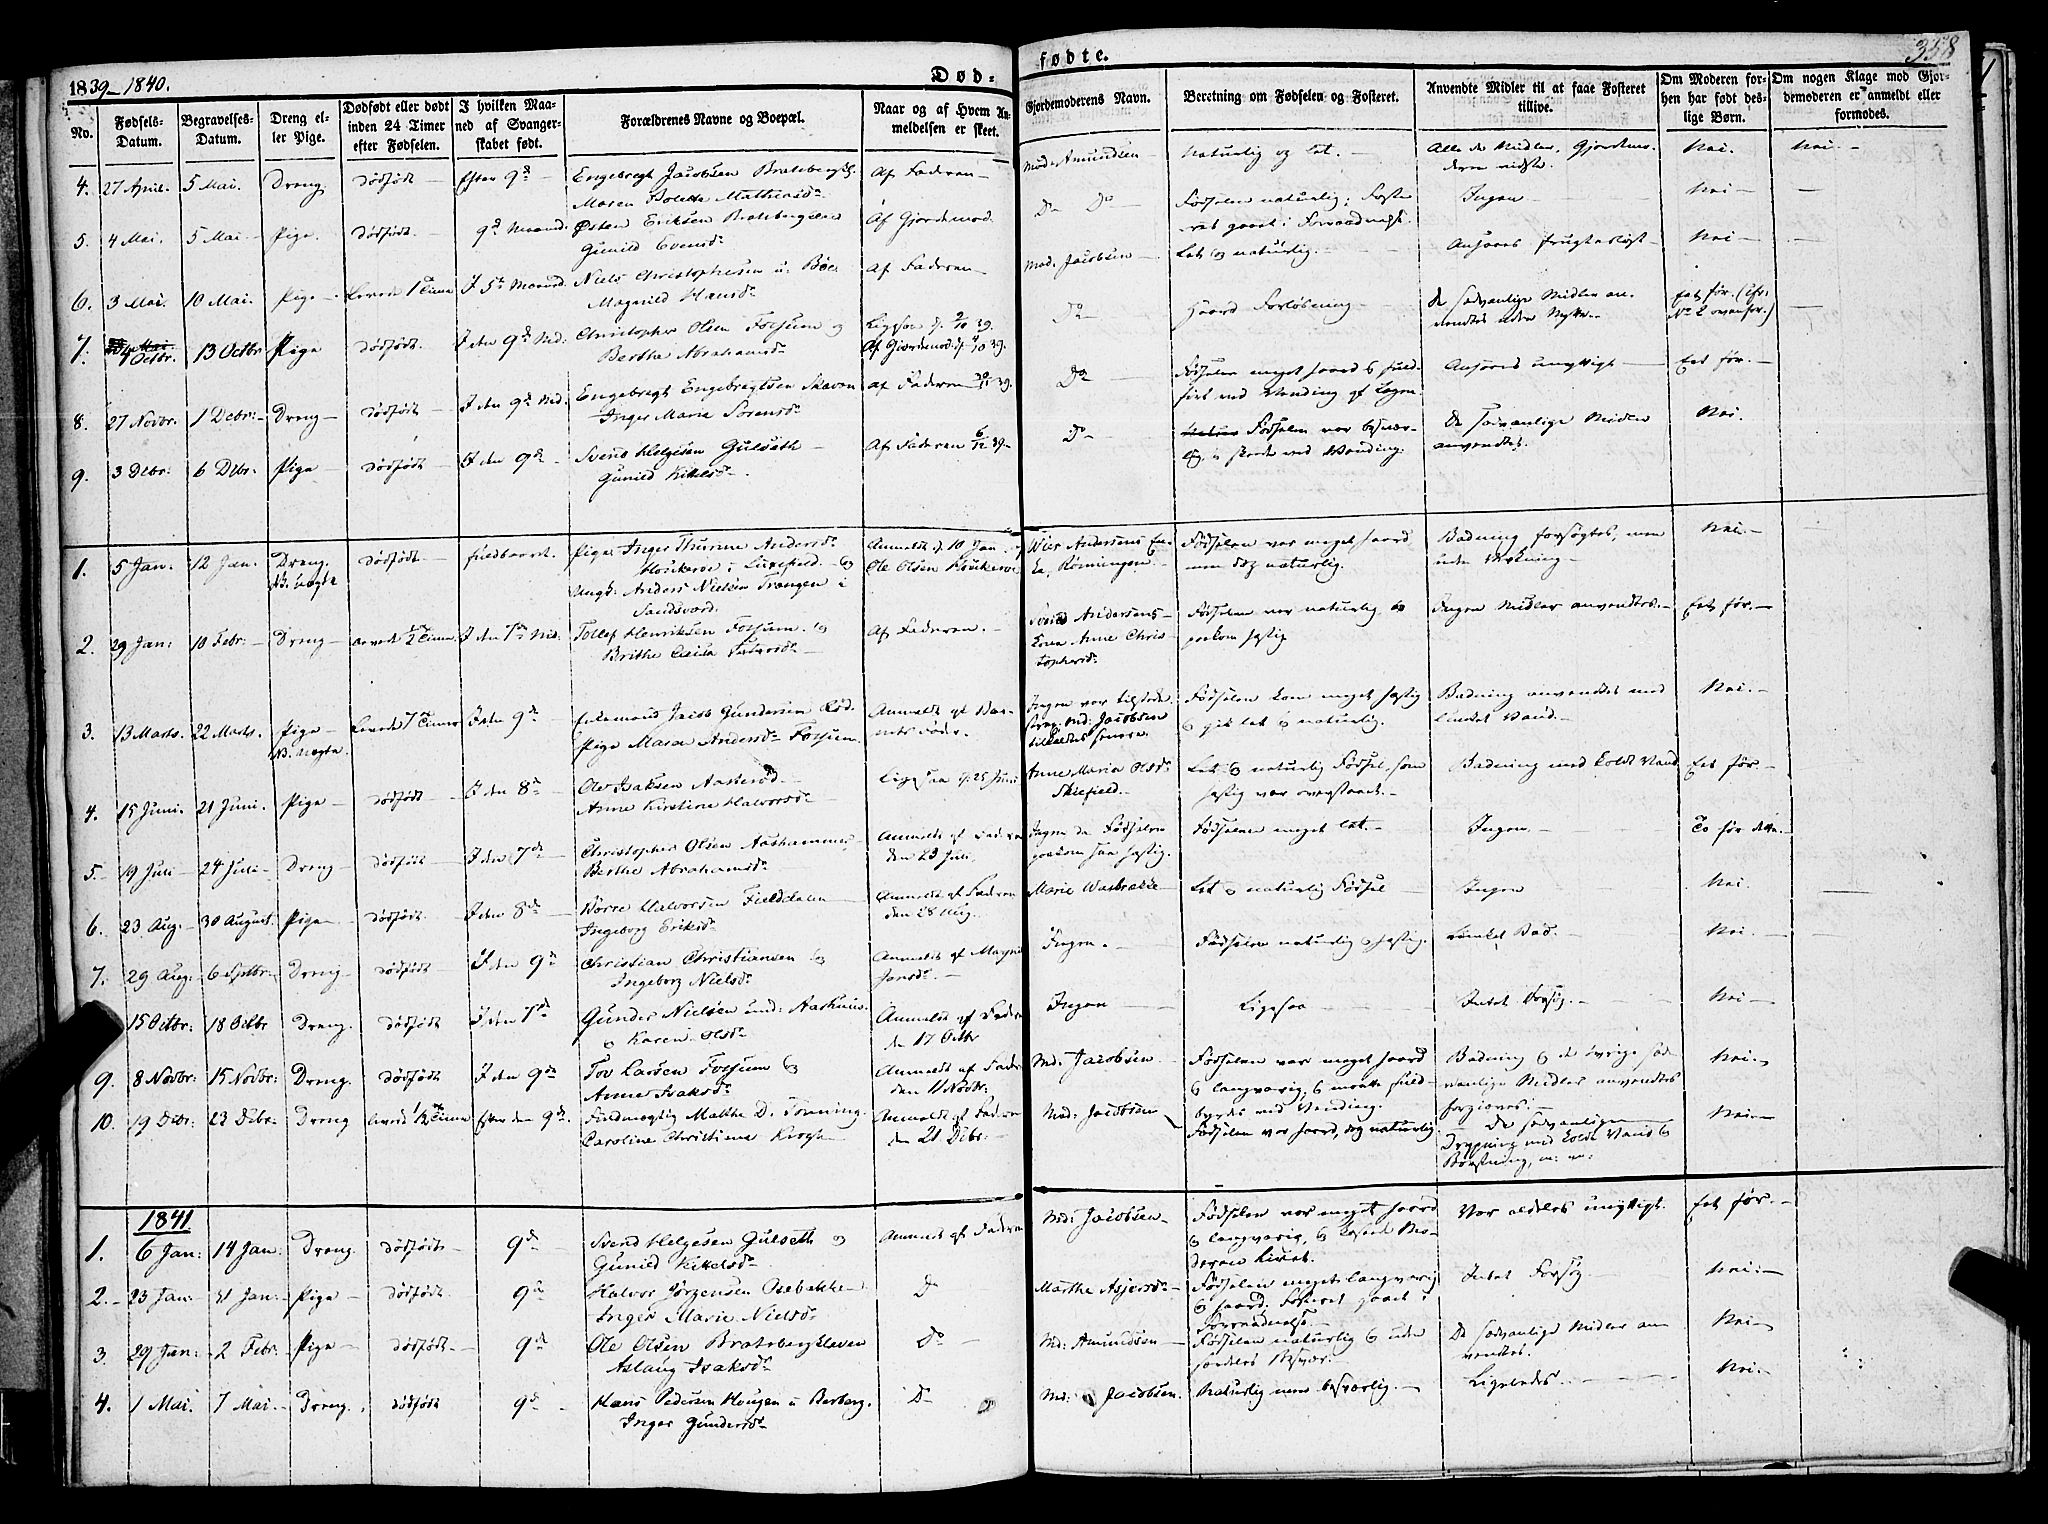 1839-1840.
Død-
fødte.
358
No.
Fødsels-
Datum.
Begravelses-
Datum.
Dreng el-
ler Pige.
Dødfødt eller dødt
inden 24 Timer
efter Fødselen.
I hvilken Maa-
ned af Svanger-
skabet født.
Forældrenes Navne og Boepæl.
Naar og af Hvem An-
meldelsen er skeet.
Gjordemoderens Navn.
Beretning om Fødselen og Fosteret.
Anvendte Midler til at faae Fosteret
tillive.
Om Moderen for-
hen har født des-
lige Børn.
Om nogen Klage mod Gjor-
demoderen er anmeldt eller
formodes.
4. 27 April. 5 Mai. Dreng dødfødt Efter 9de Engebregt Jacobsen
Maren Mathiasdr Af Faderen Mad. Amundsen Naturlig og let. Alle de Midler, Gjordemo-
deren vidste. Nei. Nei.
5. 4 Mai. 5 Mai. Pige. dødfødt 9de Maaned. Østen Eriksen Bratsbergkleven
Gunild Evensdr Af Gjordemod. Do Do Fødselen naturlig; Foste-
ret gaaet i Forraadnelse. Ingen Nei
6. 3 Mai. 10 Mai. Pige Levede 1 Time I 5te Maaned Niels Christophersen u. Böe
Magnild Hansdr Af Faderen Mad. Jacobsen Let og naturlig. Ansaaes frugtesløst Nei
7. 4 Octbr. 13 Octbr Pige dødfødt I den 9de Md. Christopher Olsen Fossum og
Berthe Abrahamsdr Af Gjordemod. Do Haard Forløsning De sædvanlige Midler an-
vendtes uden Nytte Eet før. (cfr.
No 2 ovenfor.)
8. 27 Novbr. 1 Debr: Dreng dødfødt I den 9de Md. Engebregt Engebregtsen
Inger Maria Sørensdr af Faderen 30/11 39. Do Fødselen meget haard & fuld-
ført ved Vending af Lægen. Ansaaes unyttigt Eet før.
9. 3 Debr: 6 Debr: Pige dødfødt I den 9de Svend Helgesen Gulseth
Gunild Kittelsdr Af Faderen 6/12 39 Do Fødselen var besvær-
lig, & skede ved Vending. De sædvanlige Midler
anvendtes. Nei.
1. 5 Jan: 12 Jan. Dreng.
NB. uægte dødfødt fuldbaaret. Pige Inger Thurine Andersdr
Ungk: Anders Nielsen i
Anmeldt d. 10 Jan. af
Ole Olsen Andersens En-
ke, Fødselen var meget haard
men dog naturlig. Badning forsøgtes, men
uden Virkning Nei.
2. 29 Jan: 10 Febr: Dreng levede 1/2 Time I den 7de Md. Tollef Henriksen Fossum. og
Af Faderen. Svend Andersens
Kone Anne Chris-
tophersdr Fødselen var naturlig &
paakom hastig Ingen Midler anvendtes. Eet før.
3. 13 Marts. 22 Marts. Pige
NB. uægte Levede 1 Time I den 9de Enkemand Jacob Gundersen
Pige Maren Andersdr Fossum. Anmeldt af Bar-
nets Fader. Ingen var tilstede
Md. Jacobsen
tilkaldtes senere. Fødselen kom meget hastig
& gik let & naturlig. Badning anvendtes med
lunket Vand. Nei.
4. 15 Juni. 21 Juni. Pige dødfødt I den 8de Ole Isaksen Aasterød
Anne Kirstine Halvorsdr Ligesaa d. 25 Juni Anne Maria Olsdr
Let & naturlig Fødsel, som
hastig var overstaaet. Badning med koldt Vand Eet før.
5. 19 Juli 24 Juli Dreng dødfødt I den 7de Christopher Olsen Aashammer
Berthe Abrahamsdr Anmeldt af Faderen
den 23 Juli. Ingen da Fødselen
paakom saa hastig. Fødselen meget let. Ingen To før dette.
6. 23 Aug. 30 August. Pige dødfødt I den 8de Halvorsen
Ingeborg Eriksdr Anmeldt af Faderen
den 28 Aug. Marie Let & naturlig Fødsel Ingen Nei.
7. 29 Aug: 6 Septbr: Dreng dødfødt I den 9de Christian Christiansen og
Ingeborg Nielsdr Anmeldt af
Ingen. Fødselen naturlig & hastig. Lunket Bad. Nei.
15 Octbr: 18 Octbr Dreng. dødfødt I den 7de Gunder Nielsen und:
& Karen Olsdr Anmeldt af Fader
den 17 Octbr Ingen Ligesaa Intet Forsøg. Nei
9. 8 Novbr: 15 Novbr: Dreng. dødfødt I den 9de Tov Larsen Fossum &
Anne Isaksdr Anmeldt af Fader
den 11 Novbr: Md: Jacobsen Fødselen var meget haard
& langvarig, & maatte fuld-
byrdes ved Vending. Badning & de øvrige sæd-
vanlige Midler anvendtes
forgjæves. Nei.
10. 19 Debr: 23 Debr: Dreng levede 1/2 Time Efter den 9de. Fuldmægtig D. Tønning.
Caroline Christine Krogh Anmeldt af Fader
den 21 Debr: Mad: Jacobsen Fødselen var haard, dog naturlig. De sædvanlige
Drypning med koldt Vand &
Børstning, m: m: Nei
1841
1. 6 Jan: 14 Jan: Dreng. dødfødt 9de Svend Helgesen Gulseth og
Gunild Kittelsdr Anmeldt af Faderen Md: Jacobsen Fødselen var meget haard
& langvarig, & kostede Mo-
deren Livet. Var aldeles unyttigt. Eet før.
2. 23 Jan: 31 Jan: Pige dødfødt 9de Halvor Jørgensen Osebakken
Inger Marie Nielsdr Do Marthe Asjersdr Fødselen meget langvarig
& haard; Fosteret gaaet i
Forraadnelse. Intet Forsøg Nei.
3. 29 Jan: 2 Febr: Pige dødfødt 9de Ole Olsen Bratsbergkleven
Aslaug Isaksdr Do Md: Amundsen Fødselen naturlig & uden
særdeles Besvær. De sædvanlige Midler an-
vendtes. Nei
4. 1 Mai. 7 Mai Dreng. dødfødt 9de Hans Pedersen Haugen u Borberg.
Inger Gundersdr Do Md: Jacobsen. Naturlig men besværlig. Ligeledes. Nei.